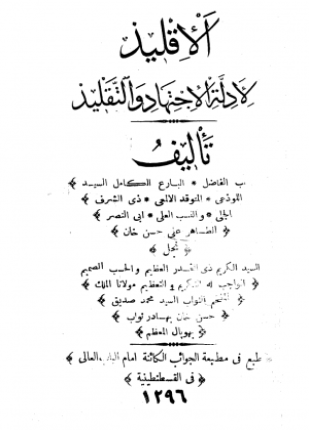 الإقليد
لأدلة الإجتهاد والتقليد
تأليف
ب الفاضل * البارع الكامل السيد
اللوذعى * المتوقد الالمعى * ذى الشرف ﴾
الجلى * والنسب العلى * ابى النصر ﴾
﴿ الطاهر على حسن خان ﴾
﴿ نجل ﴾
السيد الكريم ذى القدر العظيم والحسب الصميم
الواجب له التكريم والتعظيم مولانا الملك ﴾
المفخم النواب السيد محمد صديق ﴾
﴿ حسن خان بهادر نواب ﴾
﴿ بهوپال المعظم ﴾
طبع فى مطبعة الجوائب الكائنة امام الباب العالى ﴾
﴿ فى القسطنطينية ﴾
١٢٩٦